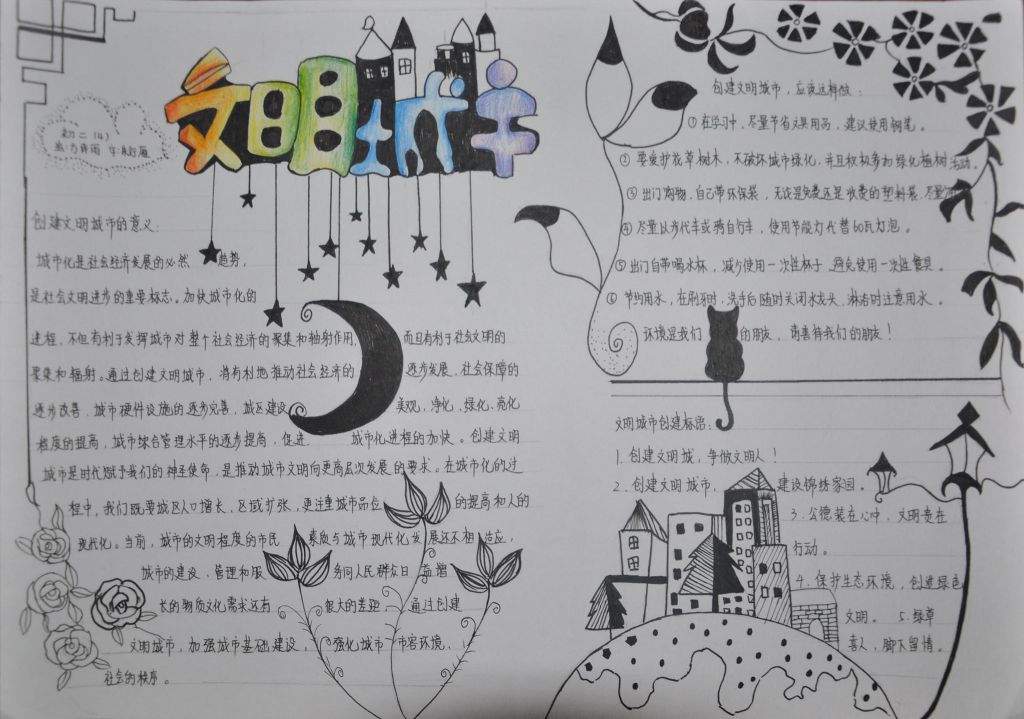 文明城市
初二（4）
创建文明城市的意义：
城市化是社会经济发展的必然趋势，
是社会文明进步的重要标志。加快城市化的
进程，不但有利于发挥城市对整个社会经济的聚集和辐射作用，而且有利于社会文明的
聚集和辐射。通过创建文明城市，将有利地推动社会经济的逐步发展，社会保障的
逐步改善，城市硬件设施的逐步完善，城区建设美观，净化，绿化，亮化
程度的提高，城市综合管理水平的逐步提高，促进城市化进程的加快。创建文明
城市是时代赋予我们的神圣使命，是推动城市文明向更高层次发展的要求。在城市化的过
程中，我们既要城区人口增长，区域扩张，更注重城市品位的提高和人的
现代化。当前，城市的文明程度的市民素质与城市现代化发展还不相适应，
城市的建设，管理和服务同人民群众日益增
长的物质文化需求还有很大的差距，通过创建
文明城市，加强城市基础建设，强化城市市容环境，
社会的秩序。
创建文明城市，应该这样做：
①在学习中，尽量节省文具用品，建议使用钢笔。
②要爱护花草树木，不破坏城市绿化，并且积极参加绿化植树活动。
③出门购物，自己带环保袋，无论是免费还是收费的塑料袋，尽量
④尽量以步代车或骑自行车，使用节能灯代替60瓦灯泡。
⑤出门自带喝水杯，减少使用一次性杯子，避免使用一次性餐具。
⑥节约用水，在刷牙时，洗手后随时关闭水龙头，淋浴时注意用水。
环境是我们的朋友，请善待我们的朋友！
文明城市创建标语：
1.创建文明城，争做文明人！
2.创建文明城市，建设锦绣家园。
3.公德装在心中，文明贵在
行动。
4.保护生态环境，创造绿色
文明。 5.绿草
喜人，脚下留情。